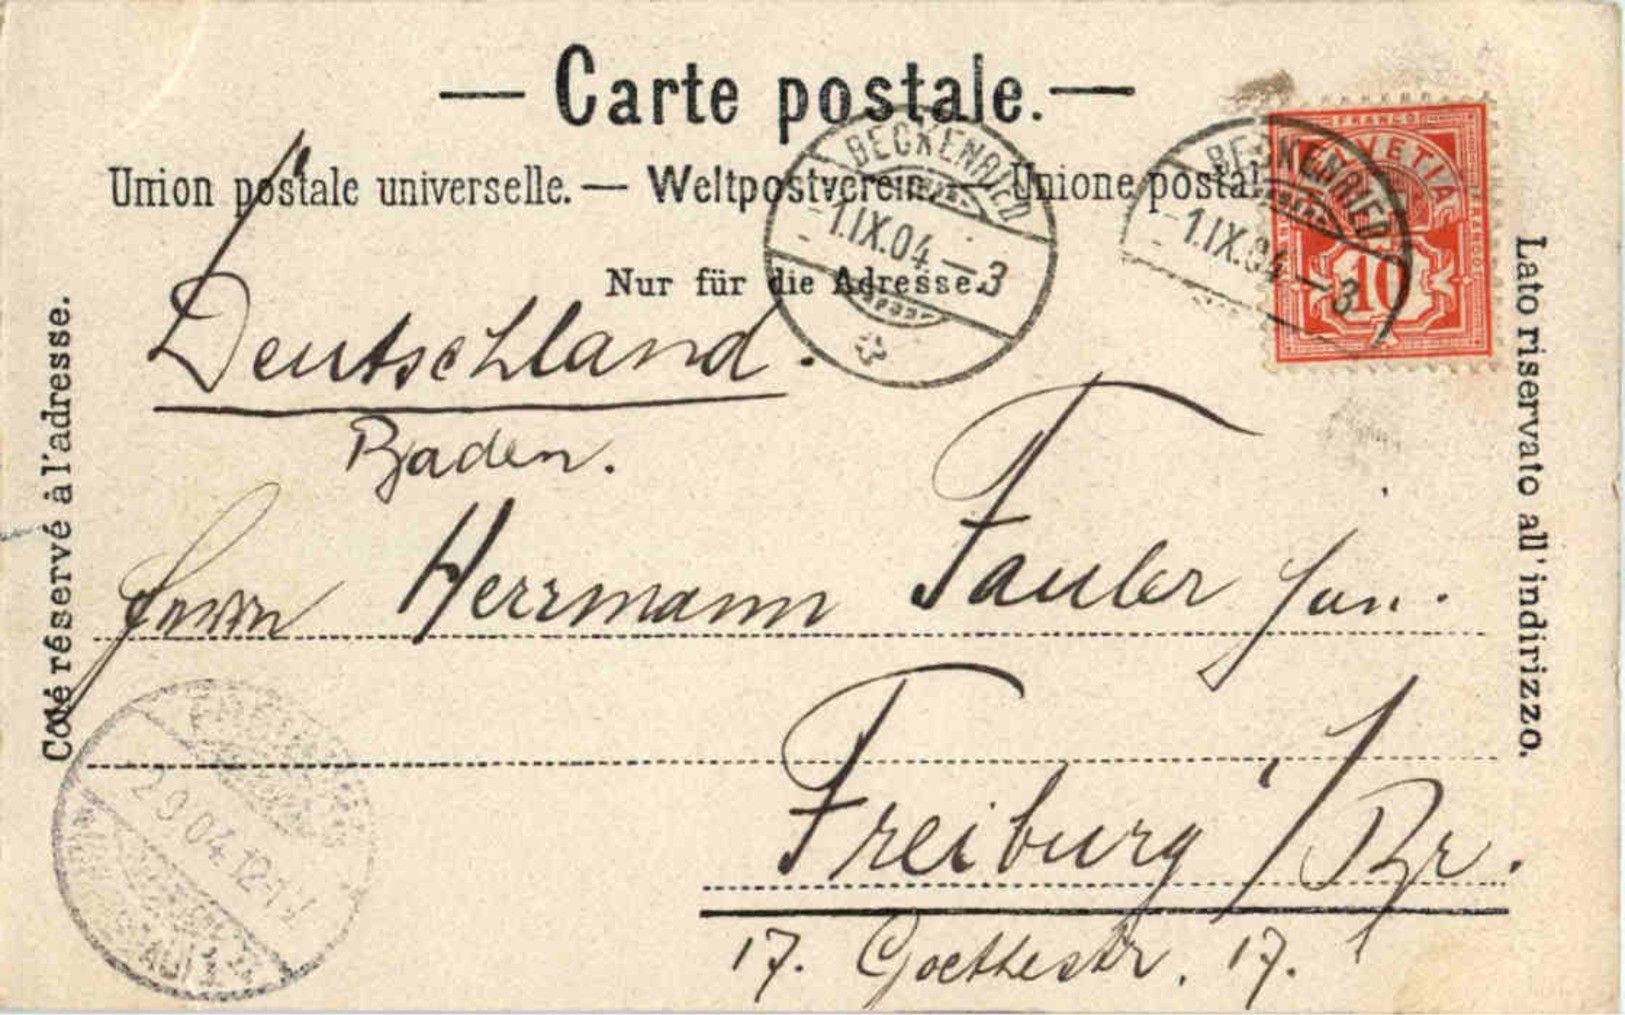 — Carte postale. —
Union postale universelle. — Weltpostverein. — Unione postal
Nur für die Adresse.
BECKENRIED
-1.IX.04-3
BECKENRIED
-1.IX.04-3
FRANCO
HELVETIA
FRANCO
10
Côté réservé à l'adresse.
Lato riservato all'indirizzo.
Deutschland.
Baden.
Herrn Herrmann Fauler jun.
Freiburg i/Br.
17. Goethestr. 17.
2.9.04.12-1